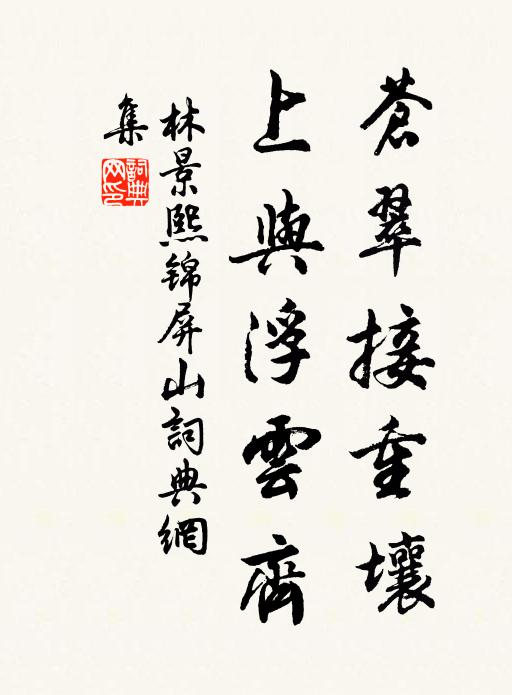 蒼翠接重壤
上與浮雲齊
林景熙錦屏山詞典網
集
詞典網印